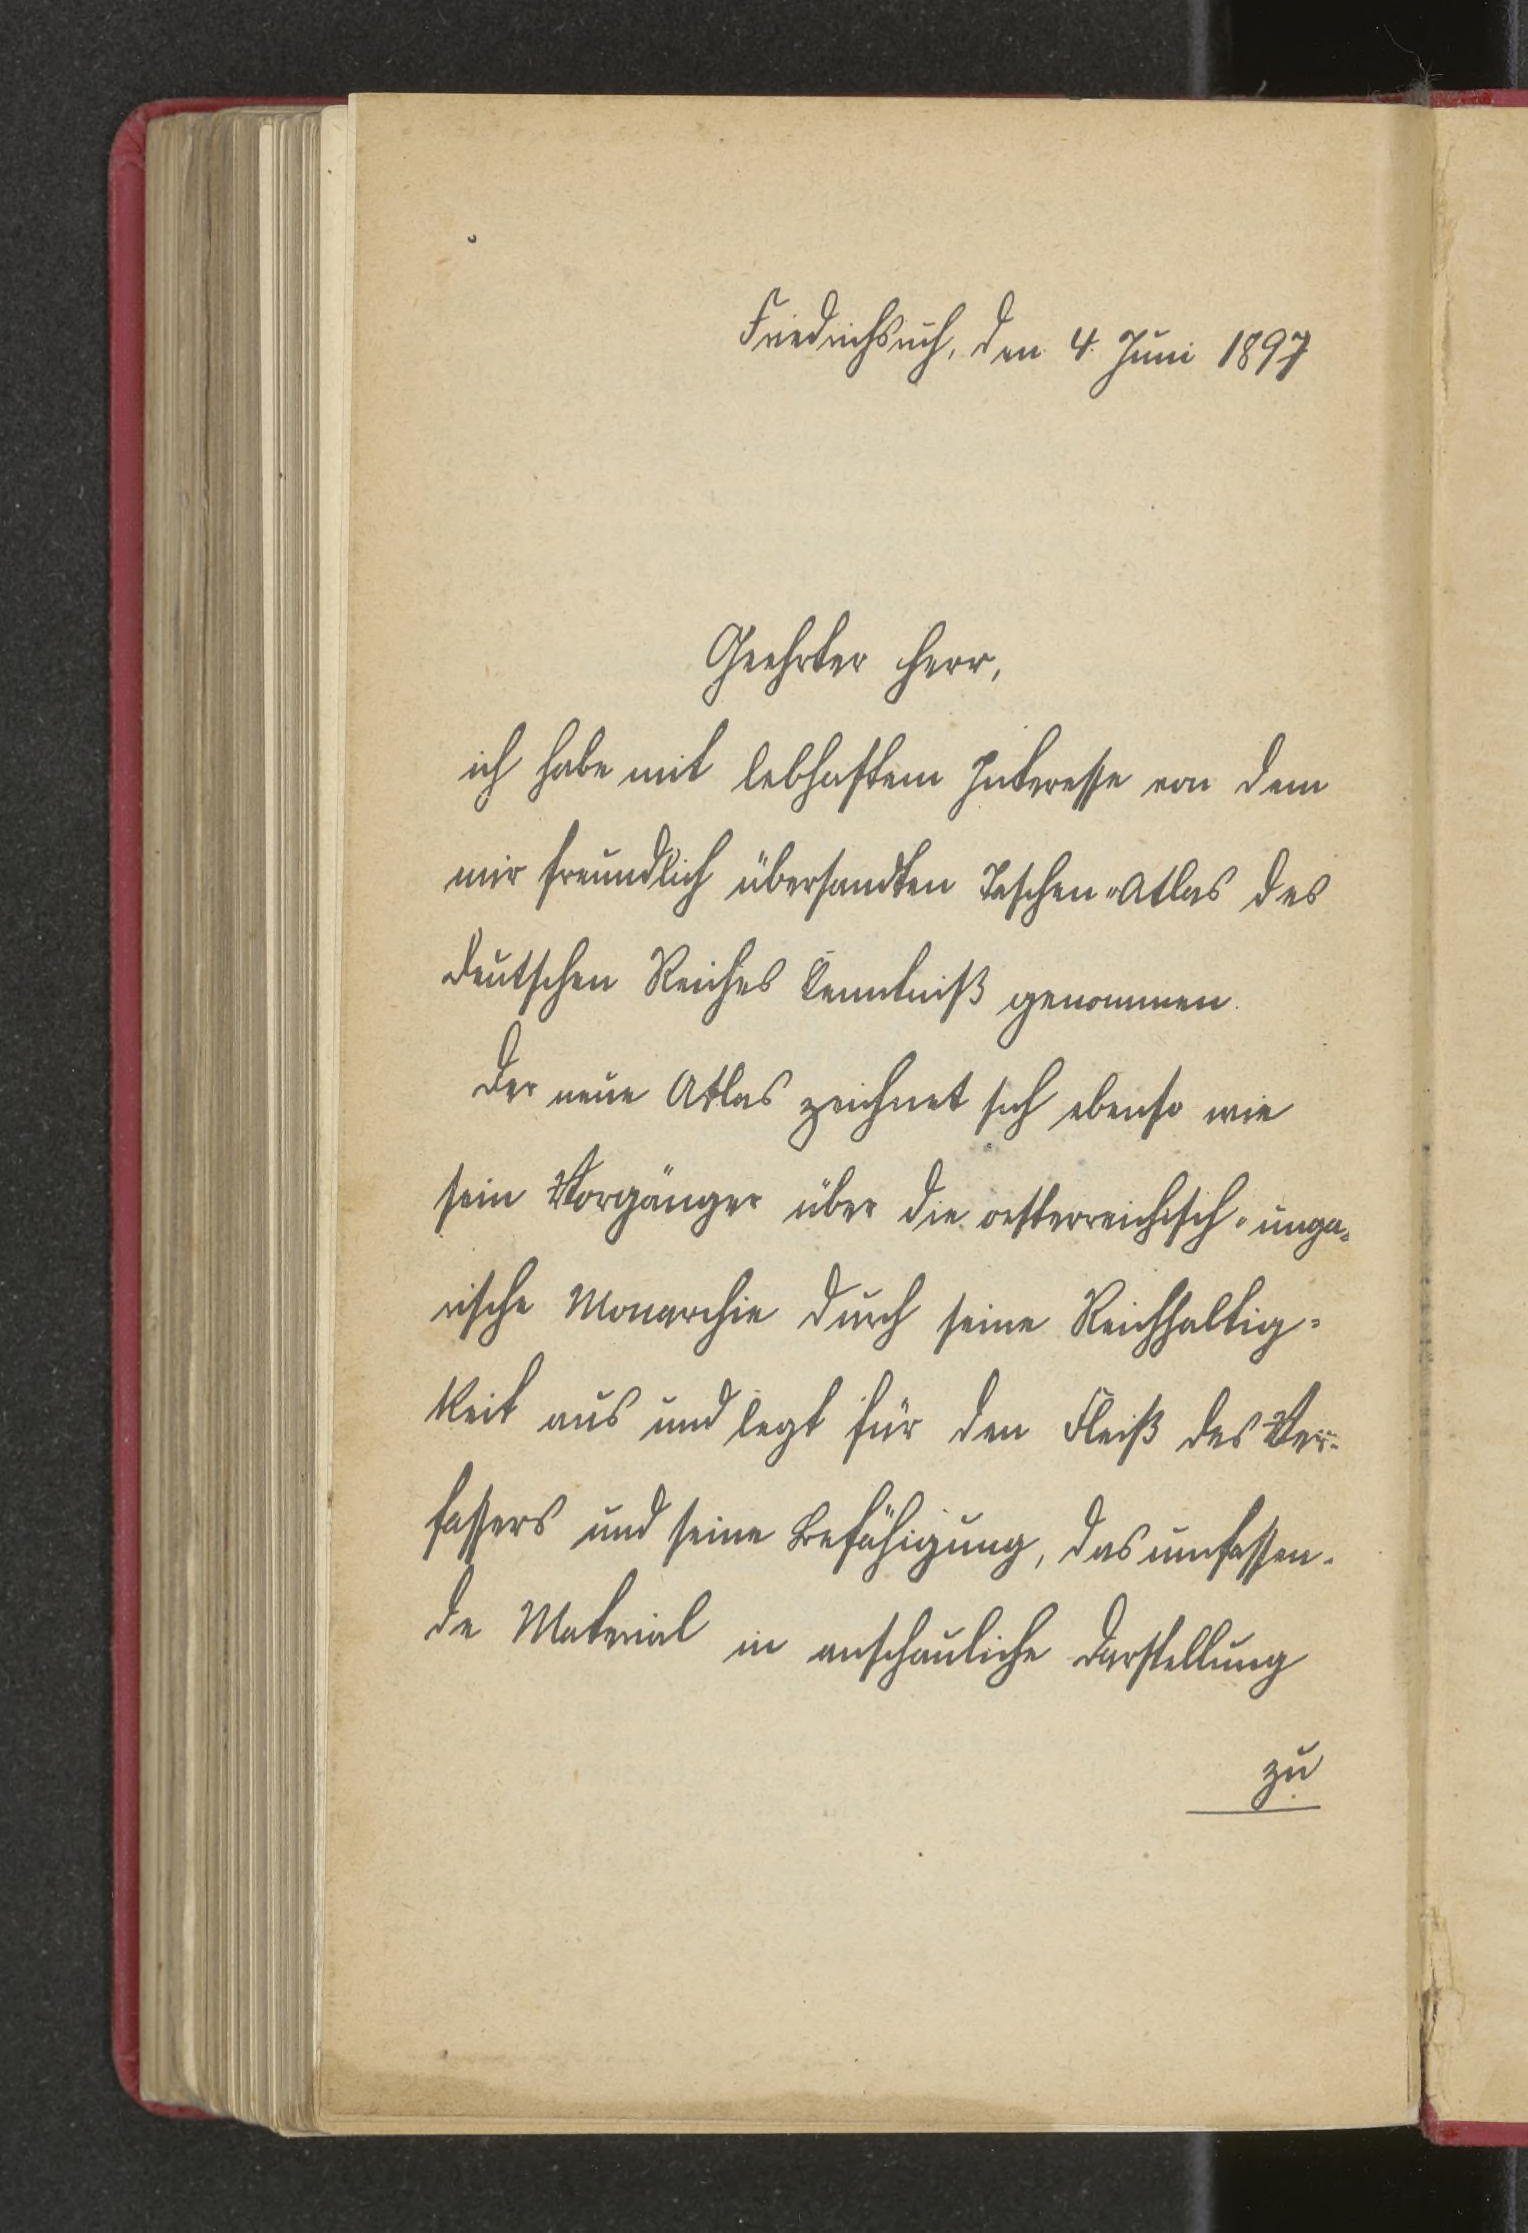 Friedrichsruh, den 4. Juni 1897
Geehrter Herr,
ich habe mit lebhaftem Interesse von dem
mir freundlich übersandten Taschen-Atlas des
deutschen Reiches Kenntniß genommen.
Der neue Atlas zeichnet sich ebenso wie
sein Vorgänger über die oesterreichisch-unga-
rische Monarchie durch seine Reichhaltig-
keit aus und legt für den Fleiß des Ver-
fassers und seine Befähigung, das umfassen-
de Material in anschauliche Darstellung
zu